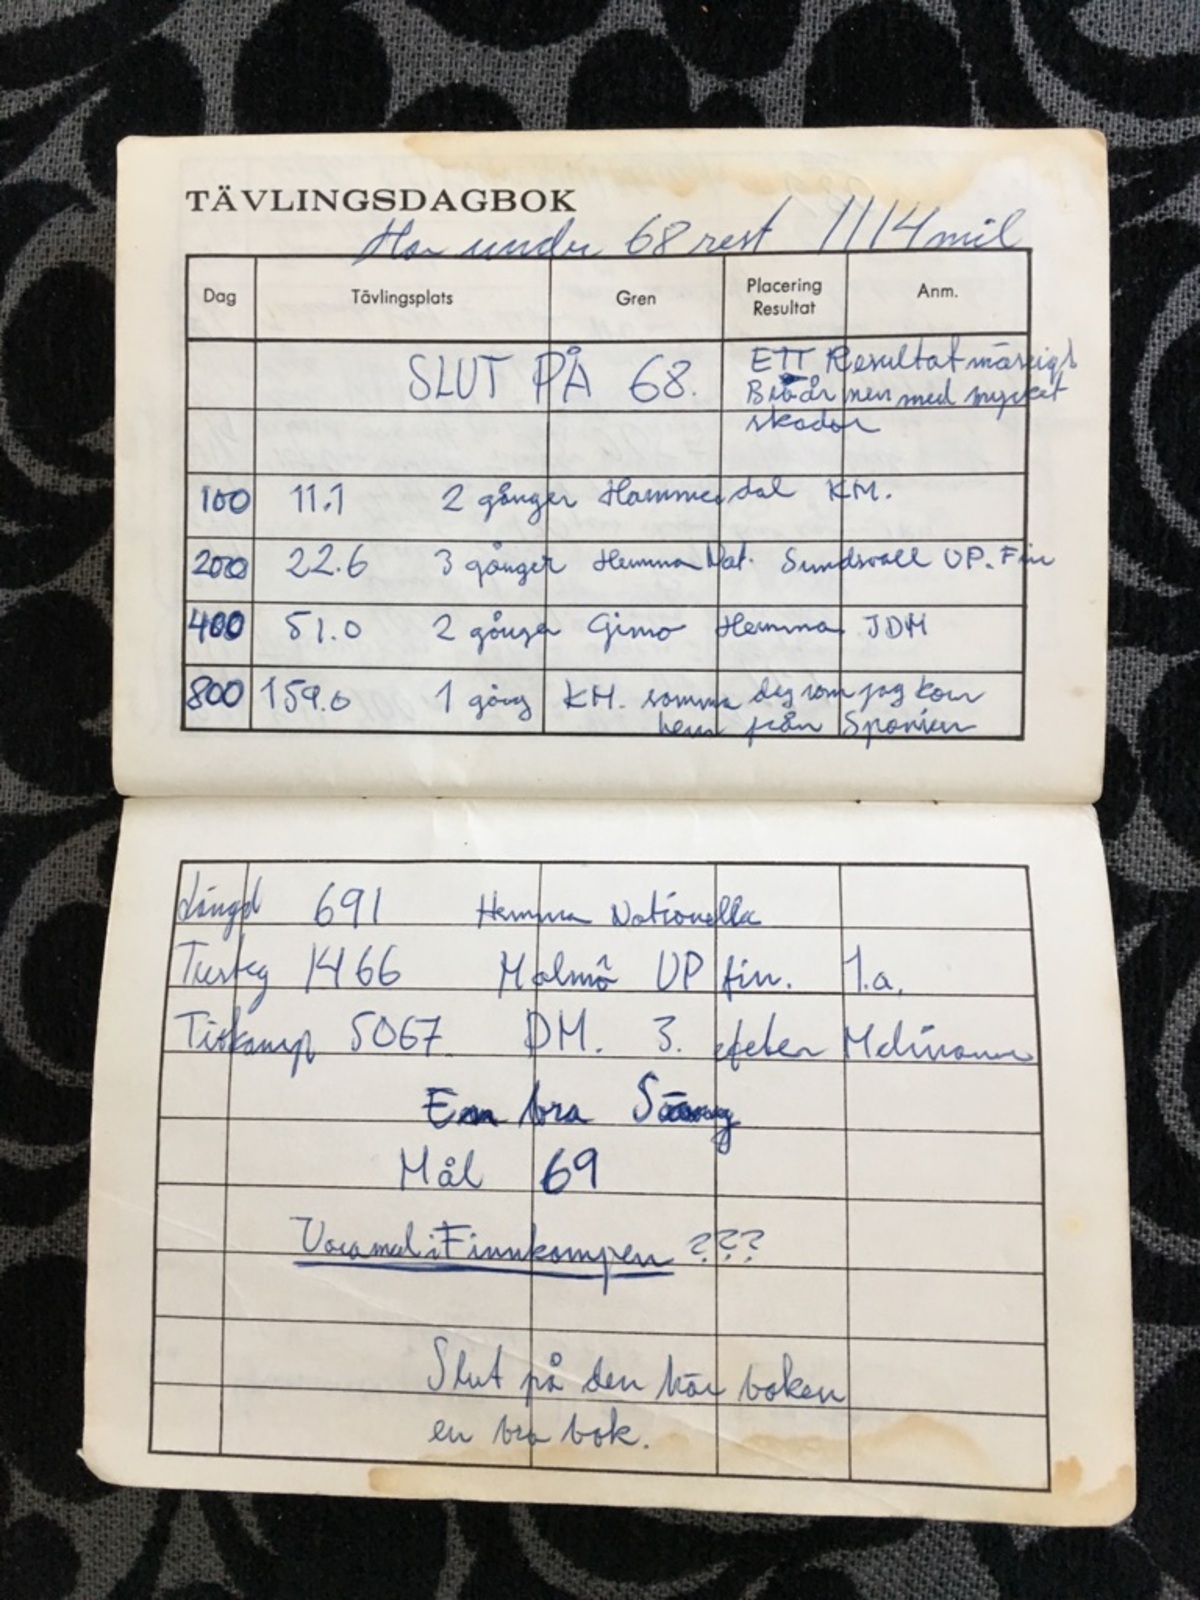 TÄVLINGSDAGBOK
Har under 68 rest 1114 mil
Dag Tävlingsplats Gren Placering Resultat Anm.
SLUT PÅ 68. ETT Resultat mässigt
Bra år men med mycket
skador
100 11.1 2 gånger Hammerdal KM.
200 22.6 3 gånger Hemma Nat. Sundsvall UP. Fin
400 51.0 2 gånger Gimo Hemma JDM
800 159.0 1 gång KM. samma dag som jag kom
hem från Spanien
Längd 691 Hemma Nationella
Tresteg 1466 Malmö UP fin. 1.a.
Tiokamp 5067 DM. 3. efter
En bra Säsong
Mål 69
Vara med i Finnkampen ???
Slut på den här boken
en bra bok.